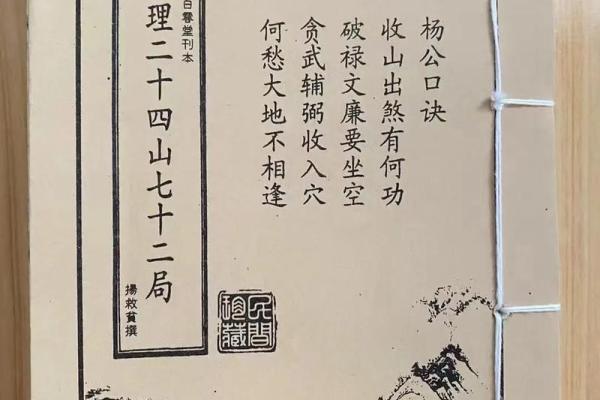 杨公口诀
收山出煞有何功
破禄文廉要坐空
贪武辅弼收入穴
何愁大地不相逢
白雲堂刊本
理二十四山七十二局
揚救貧撰
民間珍藏